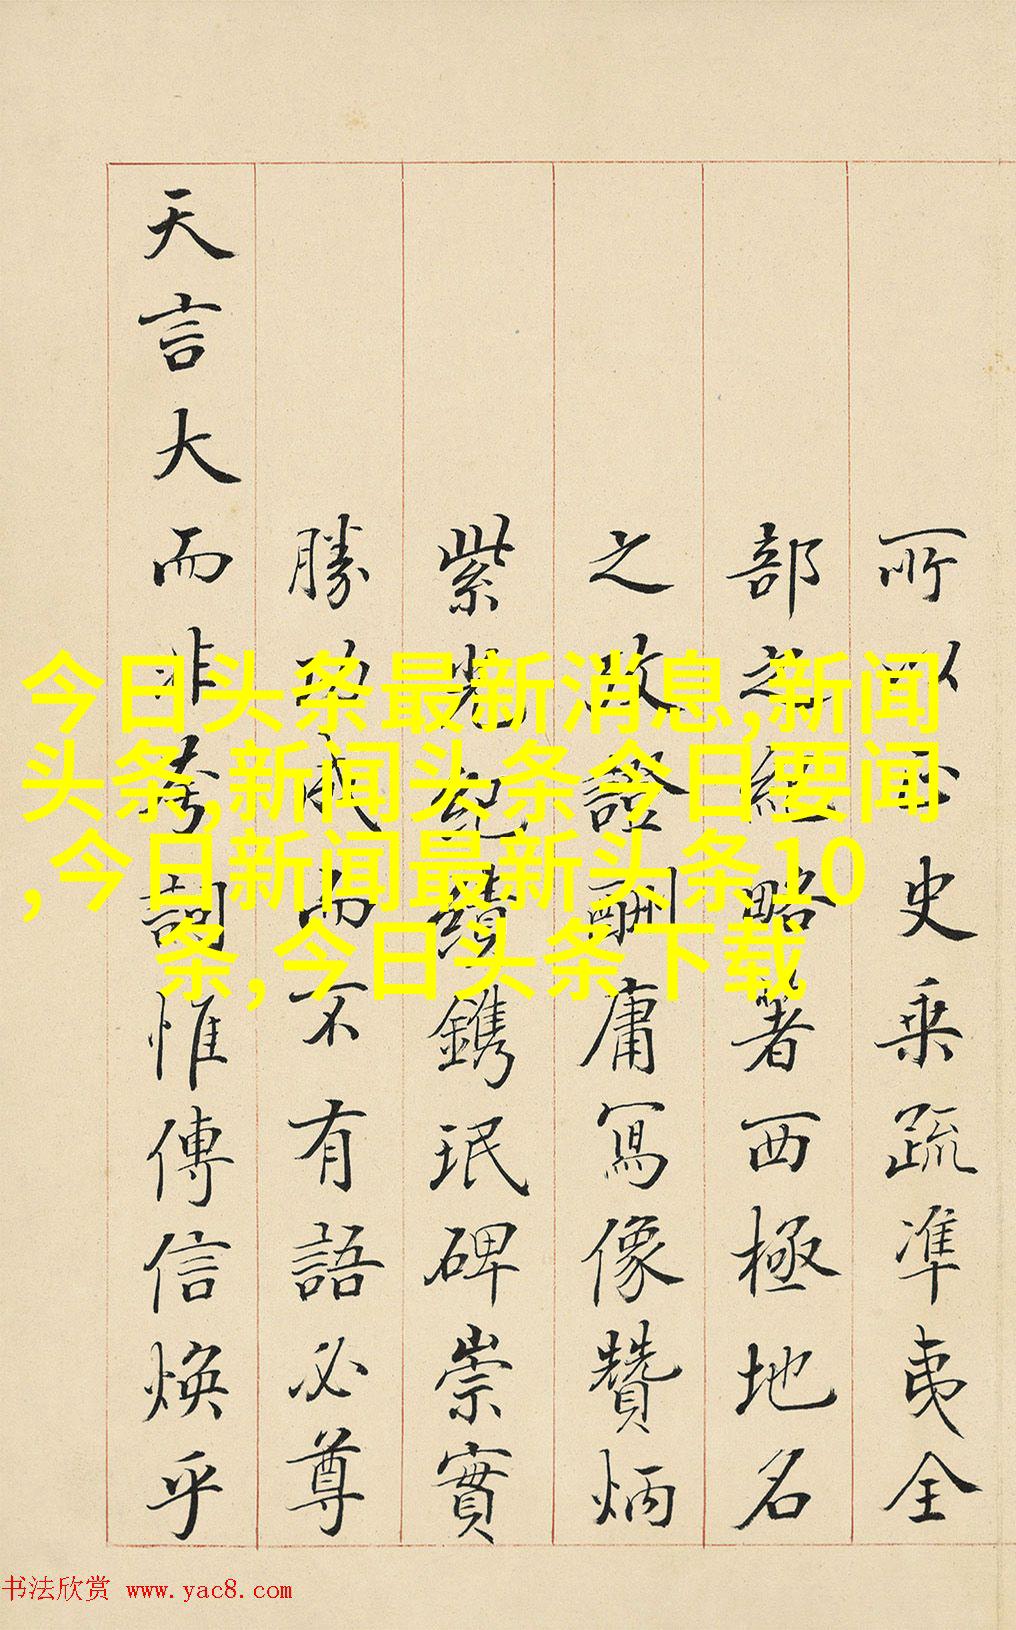 所以史乘疏凖夷全
部之經略著西極地名
之攷證酬庸寫像贊炳
紫光紀績鐫珉碑崇實
勝功成而不有語必尊
天言大而非夸詞惟傳信煥乎
今日头条最新消息,新闻
头条,新闻头条今日要闻
,今日新闻最新头条10
条,今日头条下载
书法欣赏 www.yac8.com